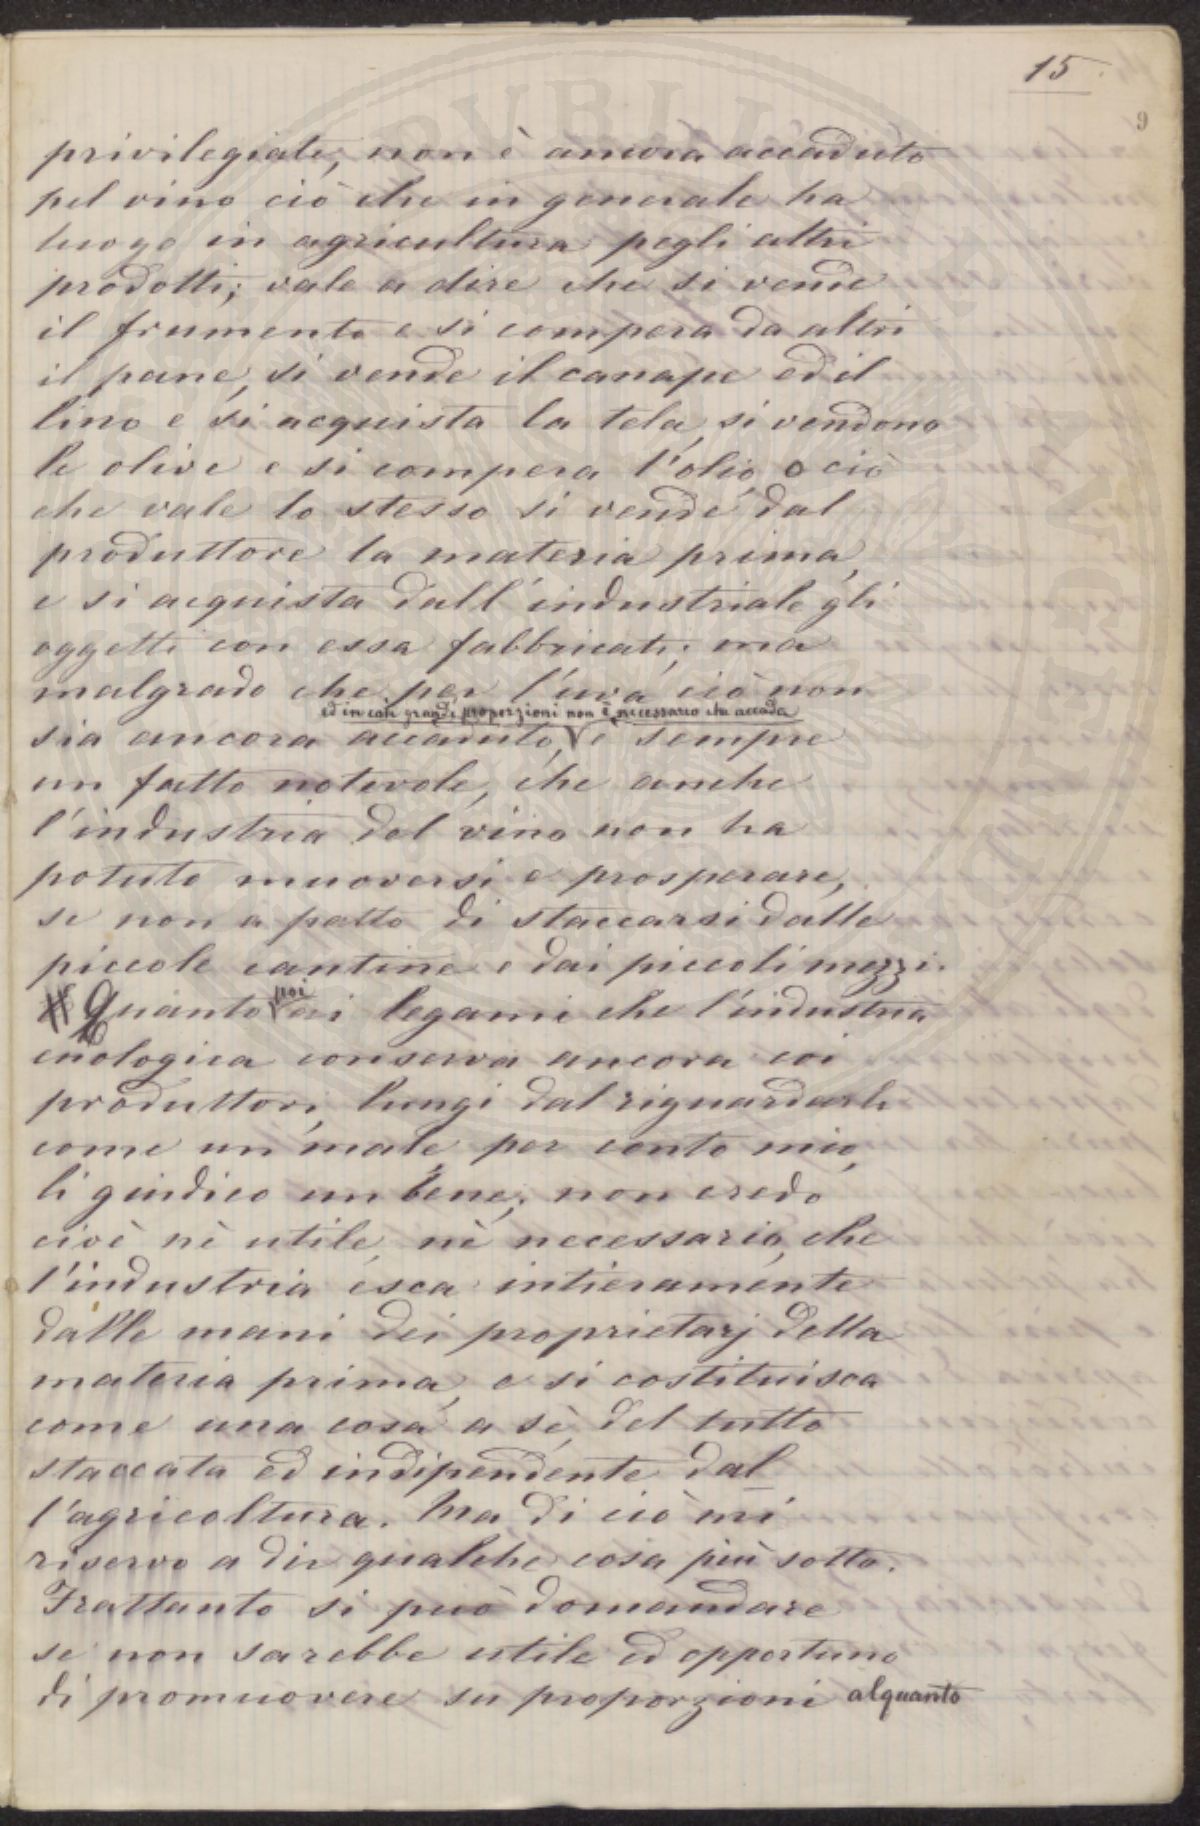 15
9
privilegiate, non è ancora accaduto
pel vino ciò che in generale ha
luogo in agricultura pegli altri
prodotti; vale a dire che si vende
il frumento e si compera da altri
il pane, si vende il canape ed il
lino e si acquista la tela, si vendono
le olive e si compera l'olio, o ciò
che vale lo stesso si vende dal
produttore la materia prima,
e si acquista dall'industriale gli
oggetti con essa fabbricati; ma
malgrado che per l'uva ciò non
ed in così grandi proporzioni non è necessario che accada
sia ancora accaduto, è sempre
un fatto notevole, che anche
l'industria del vino non ha
potuto muoversi e prosperare,
se non a patto di staccarsi dalle
piccole cantine e dai piccoli mezzi.
poi
# Quanto ai legami che l'industria
enologica conserva ancora coi
produttori, lungi dal riguardarli
come un male, per conto mio,
li giudico un bene; non credo
cioè nè utile, nè necessario, che
l'industria esca intieramente
dalle mani dei proprietarj della
materia prima, e si costituisca
come una cosa a sè, del tutto
staccata ed indipendente dal
l'agricoltura. Ma di ciò mi
riservo a dir qualche cosa più sotto.
Frattanto si può domandare
se non sarebbe utile ed opportuno
di promuovere su proporzioni alquanto